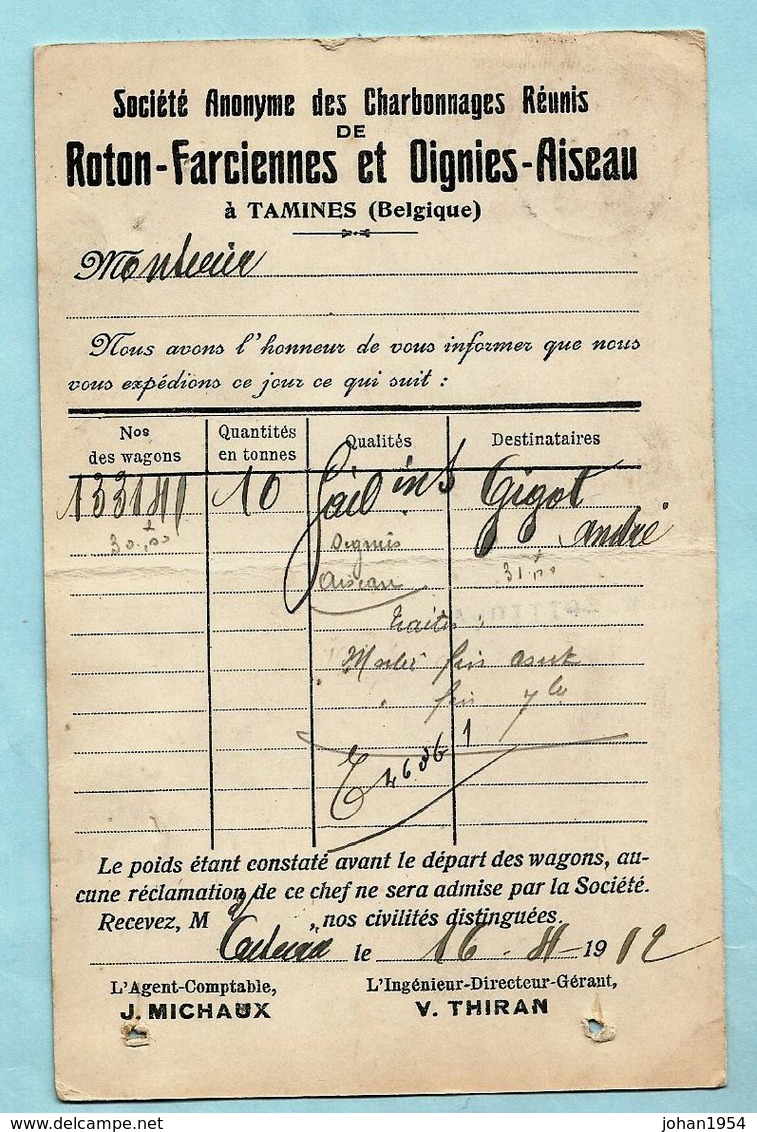 Société Anonyme des Charbonnages Réunis
DE
Roton-Farciennes et Oignies-Aiseau
à TAMINES (Belgique)
Monsieur
Nous avons l'honneur de vous informer que nous
vous expédions ce jour ce qui suit :
Nos des wagons Quantités en tonnes Qualités Destinataires
10 Gigot
André
Oignies
Aiseau
Le poids étant constaté avant le départ des wagons, au-
cune réclamation de ce chef ne sera admise par la Société.
Recevez, M „ nos civilités distinguées.
le 16 - 1912
L'Agent-Comptable, L'Ingénieur-Directeur-Gérant,
J. MICHAUX V. THIRAN
delcampe.net
johan1954